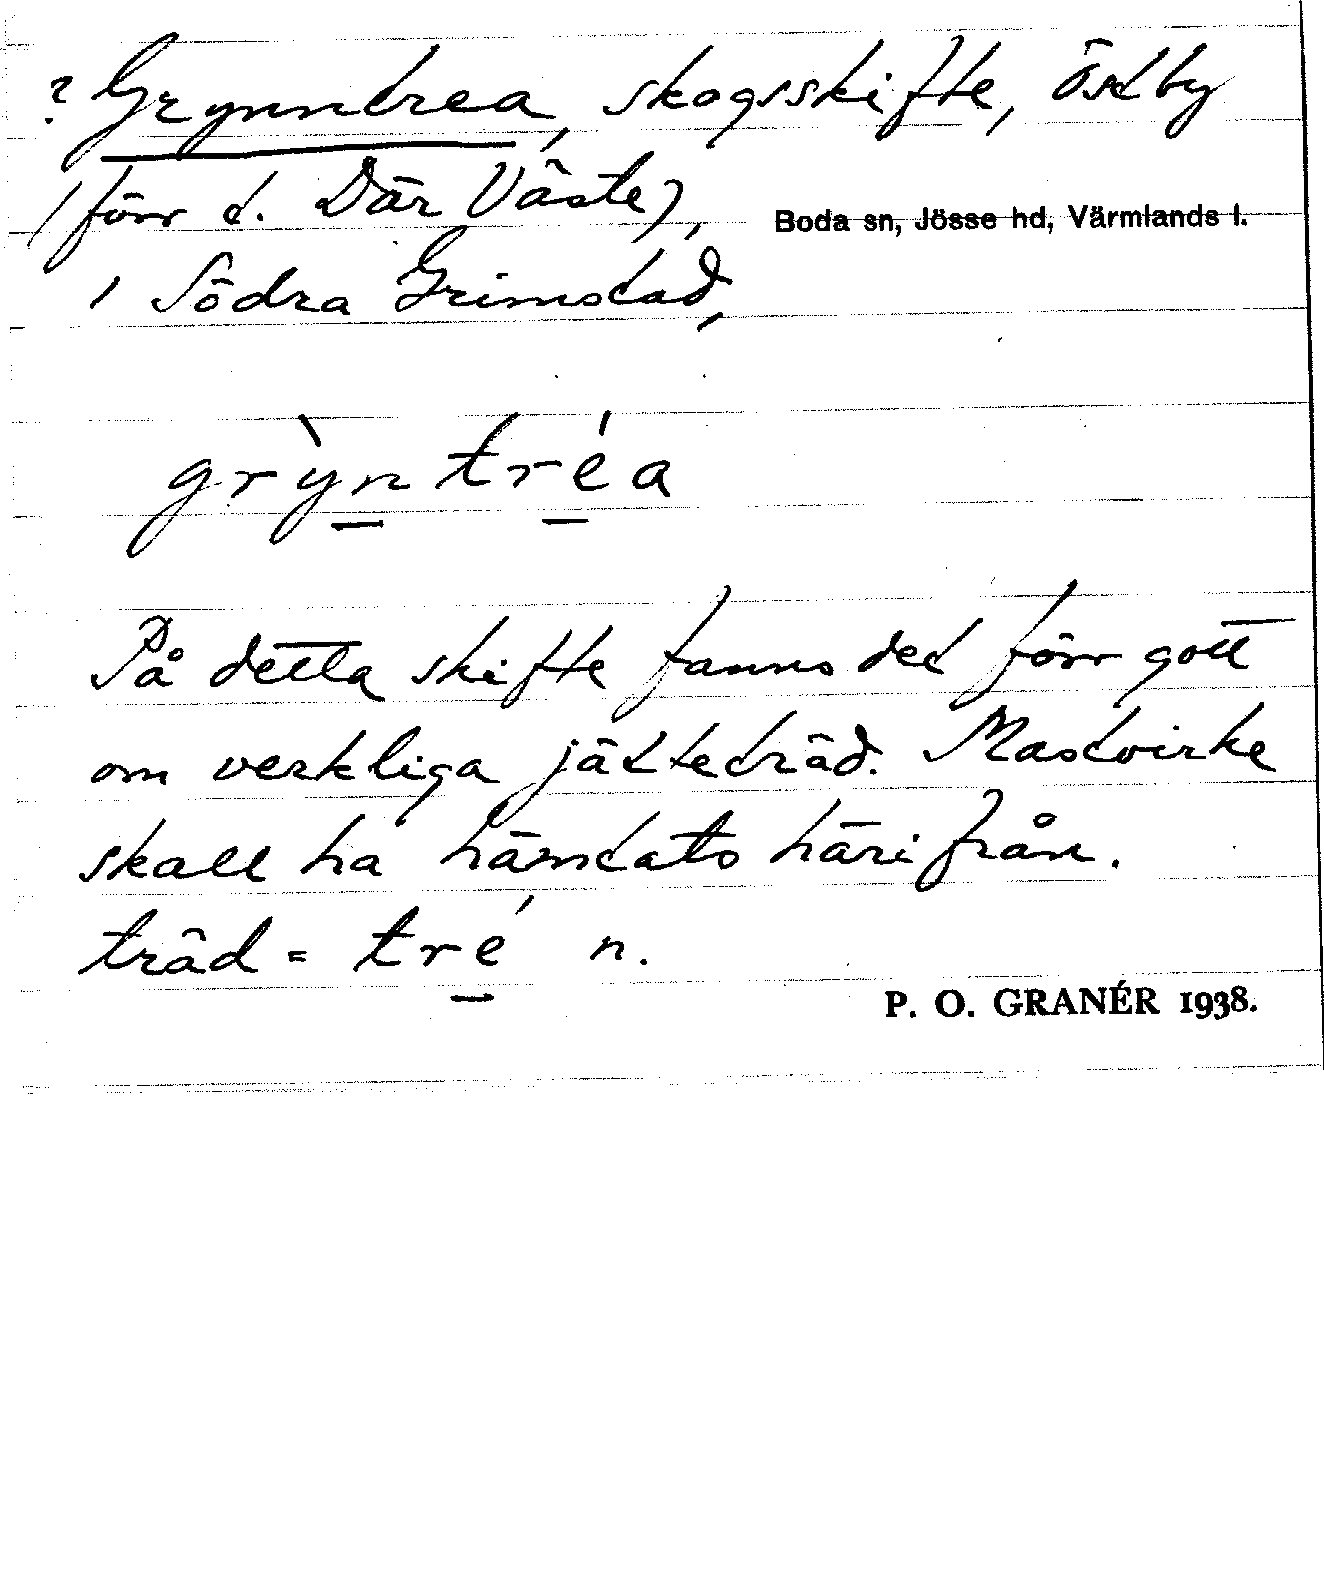 ? Grynntrea, skogsskifte, östby
(förr t. Där Väste),
Boda sn, Jösse hd, Värmlands l.
i Södra Grimstad,
grỳn tréa
På detta skifte fanns det förr gott
om verkliga jätteträd. Mastvirke
skall ha hämtats härifrån.
träd = tré n.
P. O. GRANÉR 1938.